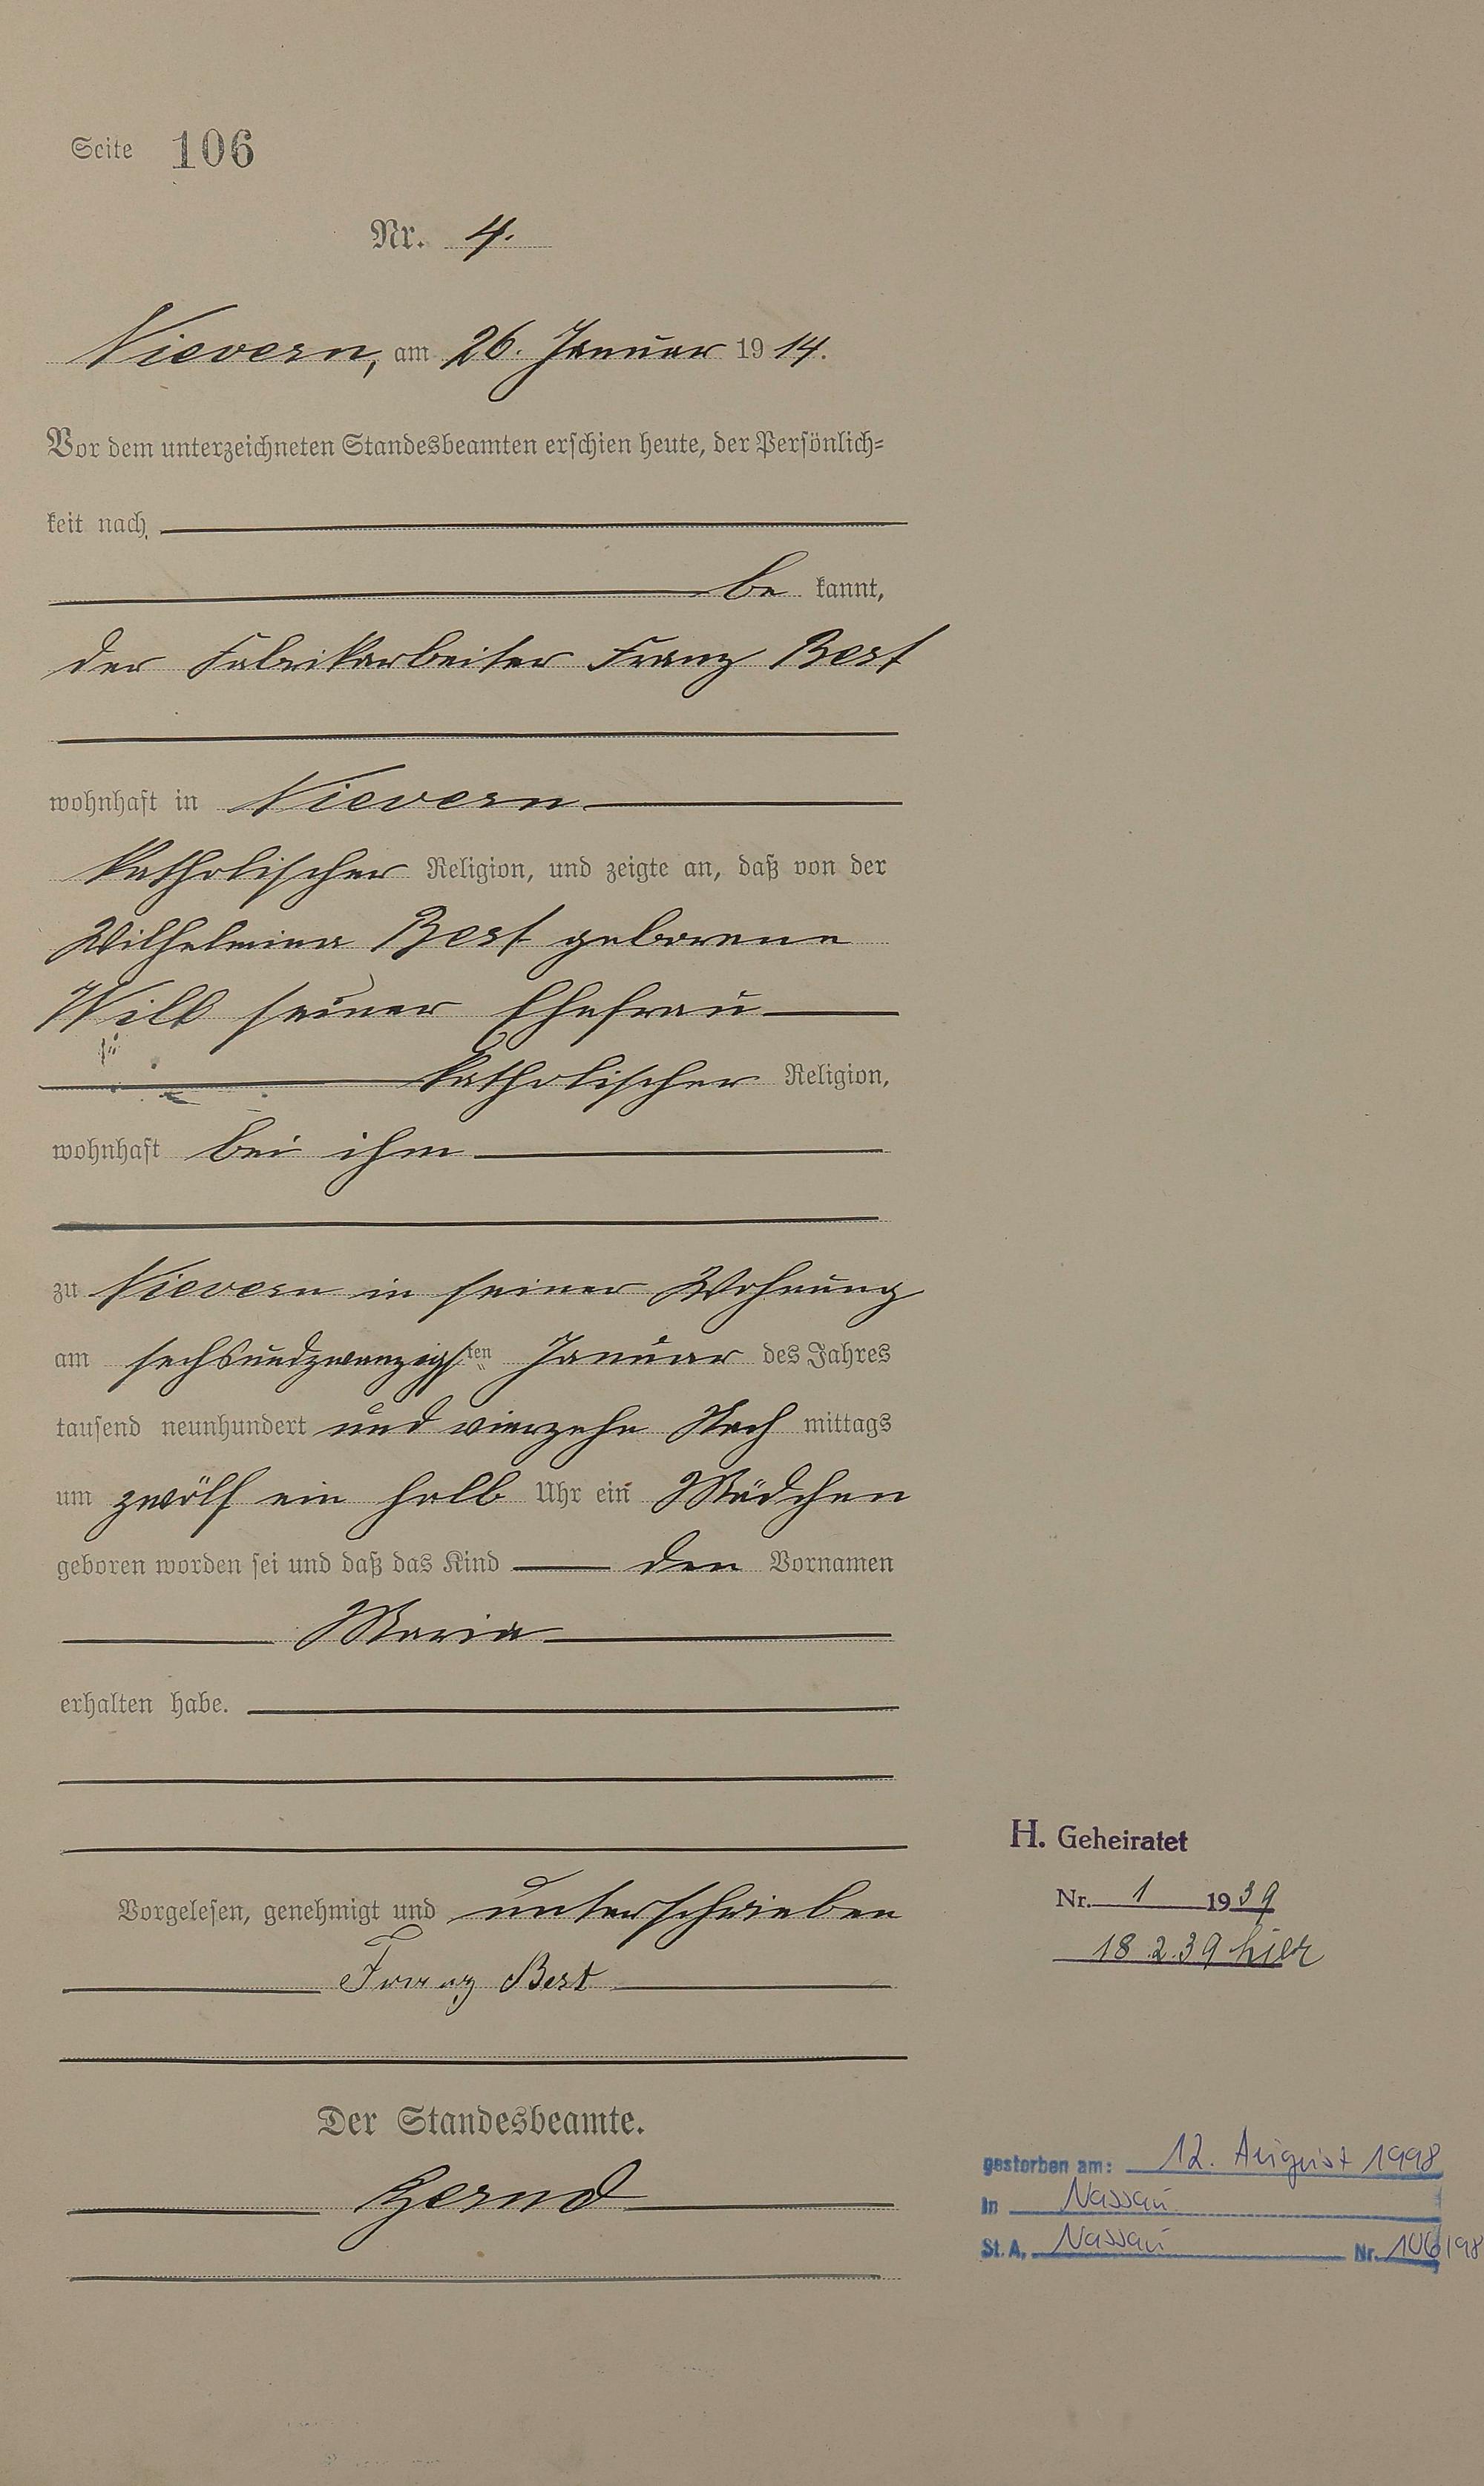 Seite 106
Nr. 4.
Nievern, am 26. Januar 1914.
Vor dem unterzeichneten Standesbeamten erschien heute, der Persönlich=
keit nach
be kannt,
der Fabrikarbeiter Franz Best
wohnhaft in Nievern
katholischer Religion, und zeigte an, daß von der
Wilhelmina Best geborene
Will seiner Ehefrau
katholischer Religion,
wohnhaft bei ihm
zu Nievern in seiner Wohnung
am sechsundzwanzigsten Januar des Jahres
tausend neunhundert und vierzehn Nach mittags
um zwölf ein halb Uhr ein Mädchen
geboren worden sei und daß das Kind den Vornamen
Maria
erhalten habe.
Vorgelesen, genehmigt und unterschrieben
Franz Best
Der Standesbeamte.
H. Geheiratet
Nr. 1 1939
18.2.39 hier
gestorben am: 12. August 1998
in Nassau
St. A. Nassau Nr. 106/98